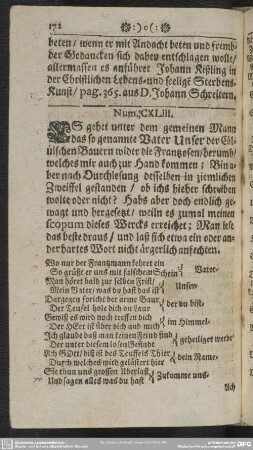 172
beten / wenn er mit Andacht beten und fremb-
der Gedancken sich dabey entschlagen wolte/
allermassen es anführet Johann Kißling in
der Christlichen Lebens- und seelige Sterbens-
Kunst / pag. 365. aus D. Johann Schreitern.
Num. CXLIII.
ES gehet unter dem gemeinen Mann
das so genannte Vater Unser der Cöl-
nischen Bauern wider die Frantzosen / herumb/
welches mir auch zur Hand kommen; Bin a-
ber nach Durchlesung desselben in ziemlichen
Zweiffel gestanden / ob ichs hieher schreiben
wolte oder nicht? Habs aber doch endlich ge-
wagt und hergesetzt / weiln es zumal meinen
scopum dieses Wercks erreichet; Man lese
das beste draus / und laß sich etwa ein oder an-
der hartes Wort nicht ärgerlich anfechten.
Wo nur der Frantzmann kehret ein
So grüßt er uns mit falschem Schein
Vater-
Man höret bald zur selben Frist/
Mein Vater / was du hast das ist
Unser-
Dargegen spricht der arme Baur
Der Teufel hole dich du Laur
der du bist-
Gewiß es wird noch treffen dich
Der HErr ist über dich und mich
im Himmel-
Ich glaube daß man keinen Feind find
Der unter diesem losen Gesinde
geheiliget werde
Ach GOtt / diß ist des Teuffels Thier
Durch welches wird gelästert hier
dein Name-
Sie thun uns grossen Uberlast
Und sagen alles was du hast
Zukomme uns-
Ach